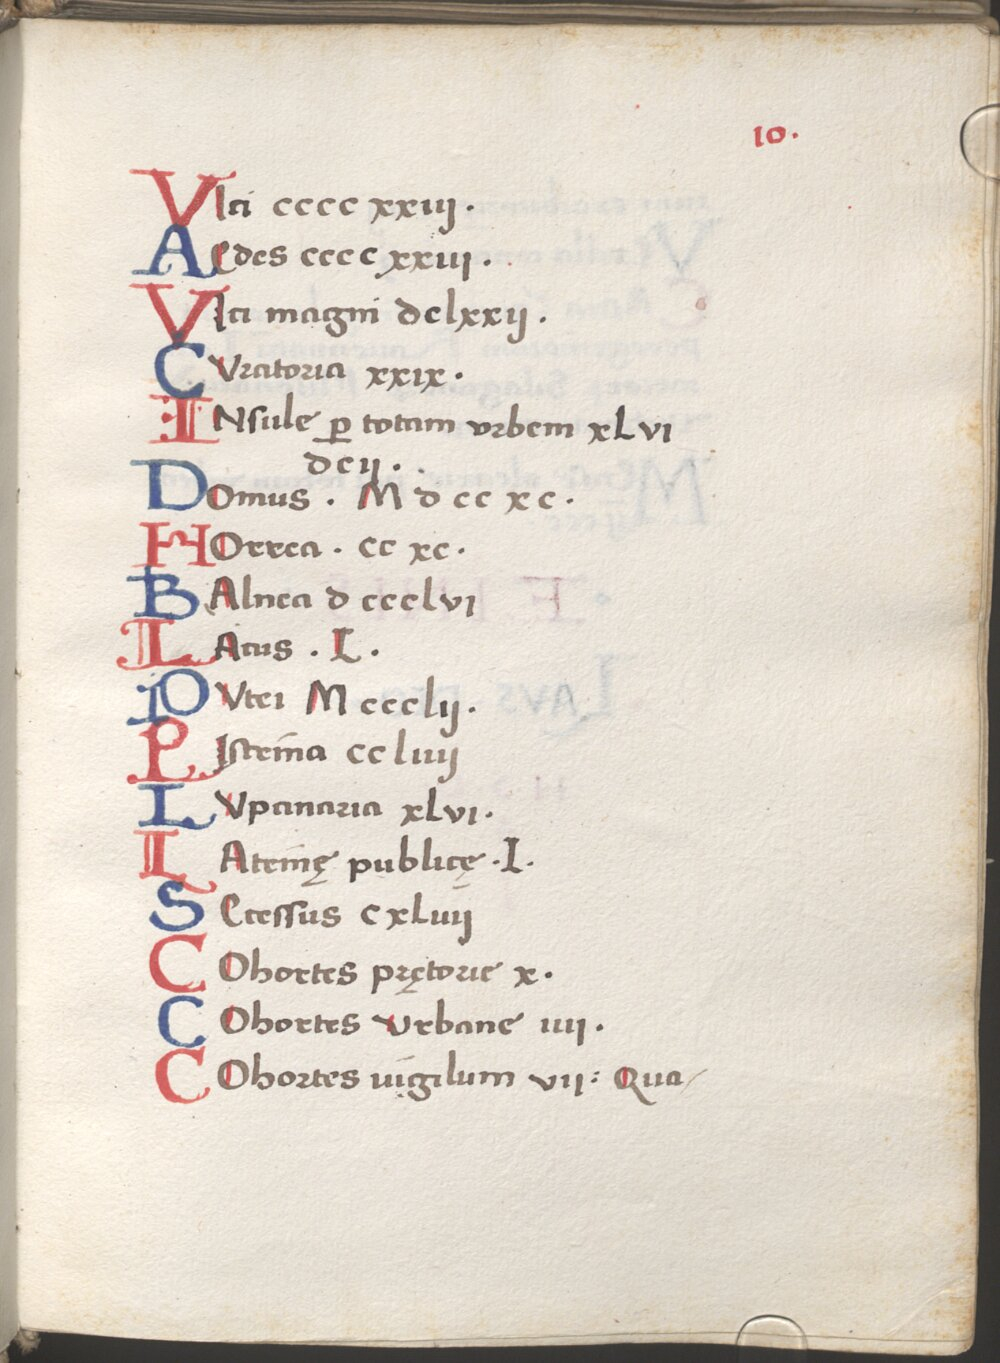 10.
VIci cccc xxiij.
AEdes cccc xxiii.
VIci magni dclxxij.
CVratoria xxix.
INsule p totam urbem xLvi
dcij.
Domus. M d cc xc.
HOrrea. cc xc.
BAlnea d ccclvi
LAcus. I.
Vtei M ccclij.
PIstrina cc liiij
LVpanaria xLvi.
LAtrinę publicę. I.
SEcessus c xLiiij
COhortes prętorie x.
COhortes Vrbane iiii.
COhortes uigilum vii: Qua/